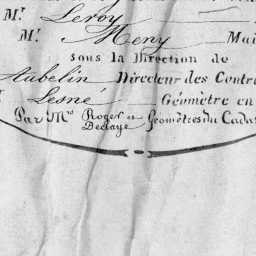 Mr. Leroy
Mr. Meny Mai
sous la Direction de
Aubelin Directeur des Contri
Lesné Géomètre en
Par Mrs Roger et Geomètres du Cadas
Declaye